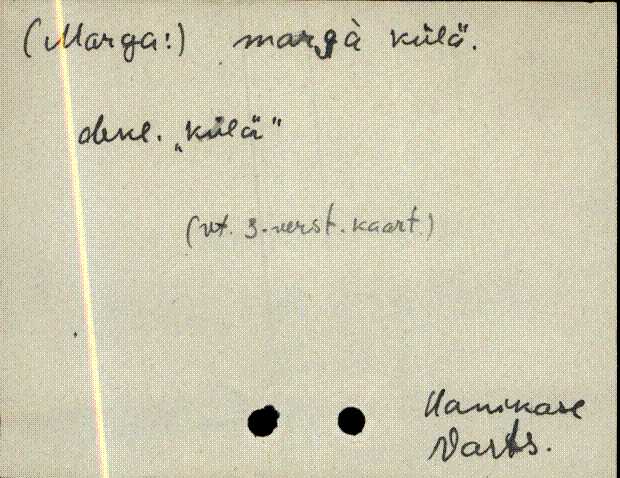 (Marga:) margà külä.
dekl. „külä"
(vt. 3-verst. kaart.)
Hanikase
Varts.